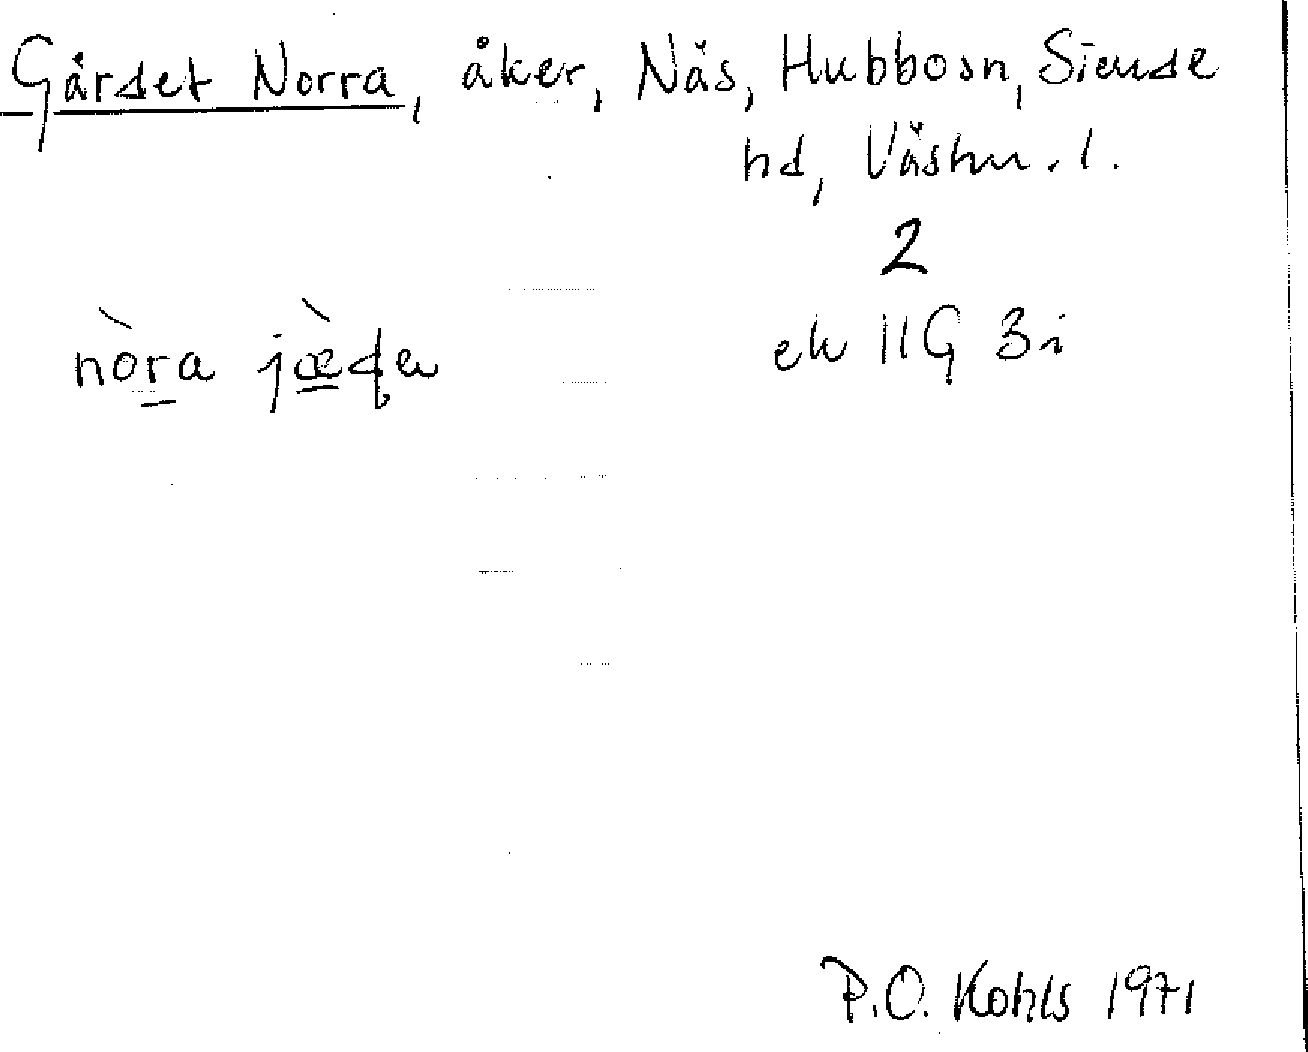 Gärdet Norra, åker, Näs, Hubbo sn, Siende
hd, Västm. l.
2
nòra jæ̀
ek 11G 3i
P.O. Kohls 1971